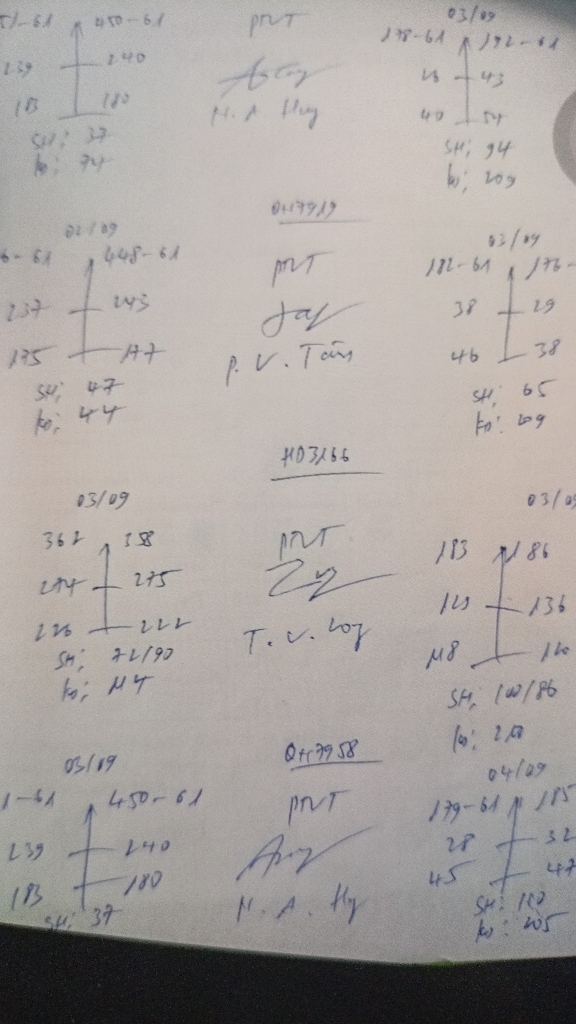 51-61 450-61
239 240
183 180
SH: 37
ko: 74
PTVT
N. A. Huy
03/09
178-61 192-61
28 43
40 54
SH: 94
ko: 209
02/09
6-61 448-61
237 243
175 177
SH: 47
ko: 44
QH7919
PTVT
P. V. Toàn
03/09
182-61 176-
38 29
46 38
SH: 65
ko: 209
03/09
362 358
274 275
226 222
SH: 72/90
ko: 114
HD3166
PTVT
T. V. Long
03/09
183 186
123 136
118 120
SH: 100/86
ko: 210
03/09
1-61 450-61
239 240
183 180
SH: 37
QH7958
PTVT
N. A. Huy
04/09
179-61 185
28 32
45 47
SH: 110
ko: 205